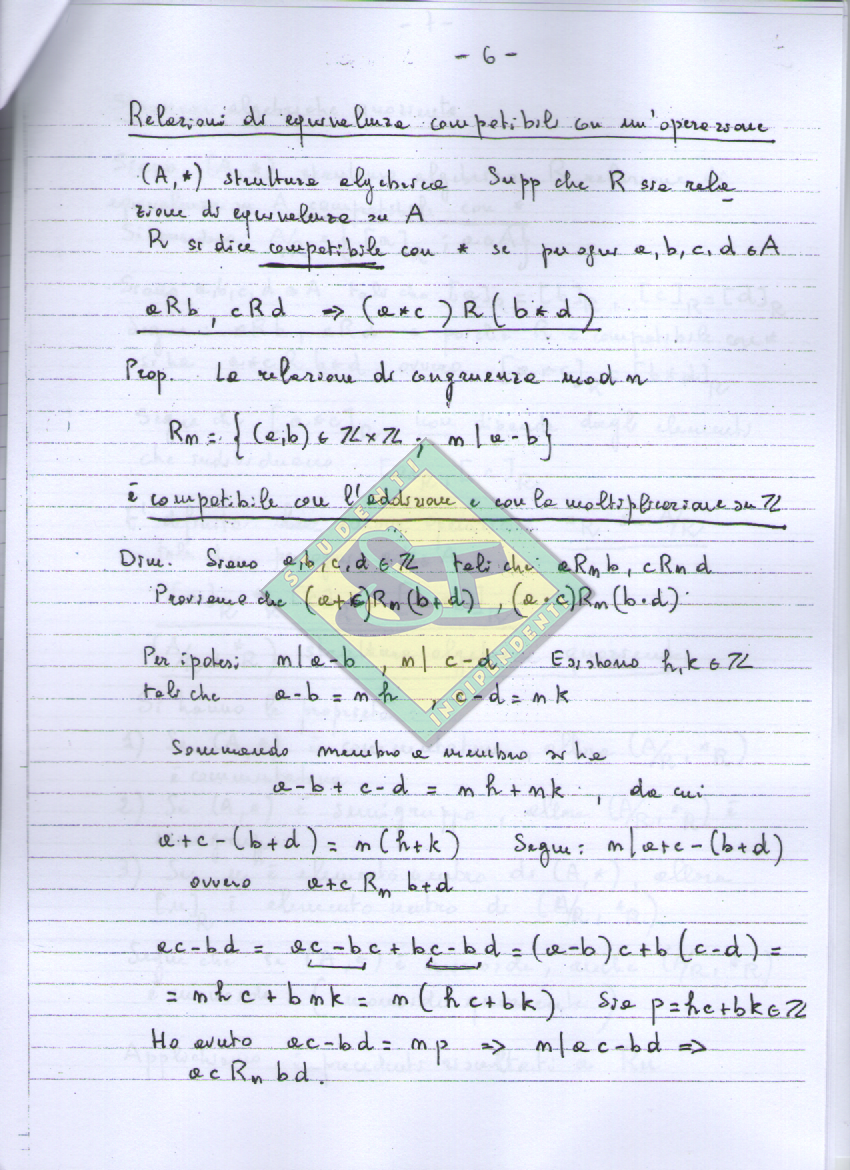 - 6 -
Relazioni di equivalenza compatibili con un'operazione
(A, *) struttura algebrica Supp che R sia rela
zione di equivalenza su A
R si dice compatibile con * se per ogni a, b, c, d ∈ A
aRb, cRd ⇒ (a*c) R (b*d)
Prop. La relazione di congruenza mod n
Rn = { (a,b) ∈ ℤ×ℤ ; n | a-b }
è compatibile con l'addizione e con la moltiplicazione su ℤ
Dim. Siano a, b, c, d ∈ ℤ tali che aRn b, cRn d
Proviamo che (a+c)Rn(b+d), (a·c)Rn(b·d)
Per ipotesi n | a-b, n | c-d Esistono h, k ∈ ℤ
tali che a-b = nh, c-d = nk
Sommando membro a membro si ha
a-b + c-d = nh + nk, da cui
a+c-(b+d) = n(h+k) Segue: n | a+c-(b+d)
ovvero a+c Rn b+d
ac-bd = ac-bc + bc-bd = (a-b)c + b(c-d) =
= nhc + bnk = n(hc+bk) Sia p = hc+bk ∈ ℤ
Ho avuto ac-bd = np ⇒ n | ac-bd ⇒
ac Rn bd.
STUDENTI
SI
INDIPENDENTI